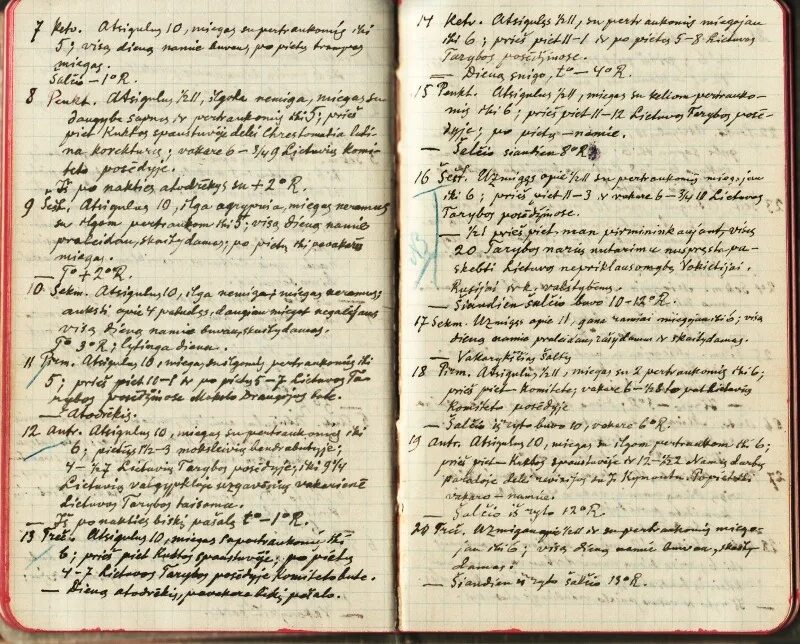 7 Ketv. Atsigulus 10, miegas su pertraukomis iki
5; visą dieną namie buvau, po pietų trumpas
miegas.
Šalčio – 1°R.
8 Penkt. Atsigulus ½11, ilgoka nemiga, miegas su
daugybe sapnų ir pertraukomis iki 5; prieš
piet Kuktos spaustuvėje dėlei Chrestomatia loti-
na korektūrų; vakare 6 – ¾9 Lietuvių Komi-
teto posėdyje.
Iš po nakties atodrėkys su +2°R.
9 Šešt. Atsigulus 10, ilga agrypnia, miegas neramus
su ilgom pertraukom iki 5; visą dieną namie
praleidau, skaitydamas; po pietų iki pavakario
miegas.
– T° +2°R.
10 Sekm. Atsigulus 10, ilga nemiga; miegas neramus;
anksti apie 4 pabudęs, daugiau miegot negalėjau;
visą dieną namie buvau, skaitydamas.
T° 3°R; lytinga diena.
11 Pirm. Atsigulus 10, miegas su ilgomis pertraukomis iki
5; prieš piet 10–1 ir po pietų 5–7 Lietuvos Ta-
rybos posėdžiuose Mokslo Draugijos bute.
– Atodrėkis.
12 Antr. Atsigulus 10, miegas su pertraukomis iki
6; pietų ½–3 bendrabutyje;
4–½7 Lietuvių Tarybos posėdyje; iki 9¼
Lietuvių valgykloje užgavėnių vakarienė
Lietuvos Tarybos taisoma.
– Iš po nakties biskį pašalę t° –1°R.
13 Treč. Atsigulus 10, miegas su pertraukomis iki
6; prieš piet Kuktos spaustuvėje; po pietų
4–7 Lietuvos Tarybos posėdyje Komiteto bute.
– Dieną atodrėkis, pavakare biskį pašalo.
14 Ketv. Atsigulęs ½11, su pertraukomis miegojau
iki 6; prieš piet 11–1 ir po pietų 5–8 Lietuvos
Tarybos posėdžiuose.
– Dieną snigo, t° –4°R.
15 Penkt. Atsigulus ½11, miegas su keliom pertrauko-
mis iki 6; prieš piet 11–12 Lietuvos Tarybos posė-
dyje; po pietų – namie.
– Šalčio šiandien 8°R
16 Šešt. Užmigęs apie ½11 su pertraukomis miegojau
iki 6; prieš piet 11–3 ir vakare 6–¾10 Lietuvos
Tarybos posėdžiuose.
– ½1 prieš piet, man pirmininkaujant, visų
20 Tarybos narių nutarimu nuspręsta pa-
skelbti Lietuvos nepriklausomybę Vokietijai,
Rusijai ir k. valstybėms.
– Šiandien šalčio buvo 10–12°R.
17 Sekm. Užmigęs apie 11, gana ramiai miegojau iki 6; visą
dieną namie praleidau, rašydamas ir skaitydamas.
– Vakarykščias šaltis
18 Pirm. Atsigulus ½11, miegas su 2 pertraukomis iki 6;
prieš piet – Komitete; vakare 6 – ½8 to pat Lietuvių
Komiteto posėdyje
– Šalčio iš ryto buvo 10, vakare 6°R.
19 Antr. Atsigulus 10, miegas su ilgom pertraukom iki 6;
prieš piet – Kuktos spaustuvėje ir 12–½2 Namų darbų
dėlei revizijos su
vakaro – namie.
– Šalčio iš ryto 12°R.
20 Treč. Užmigau apie ½11 ir su pertraukomis miego-
jau iki 6; visą dieną namie buvau, skaity-
damas.
– Šiandien iš ryto šalčio 13°R.